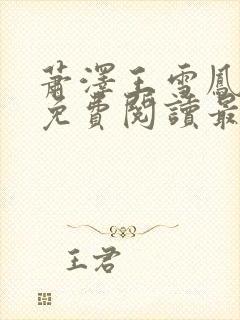 蕭澤王雪鳳
免費閱讀最
王君